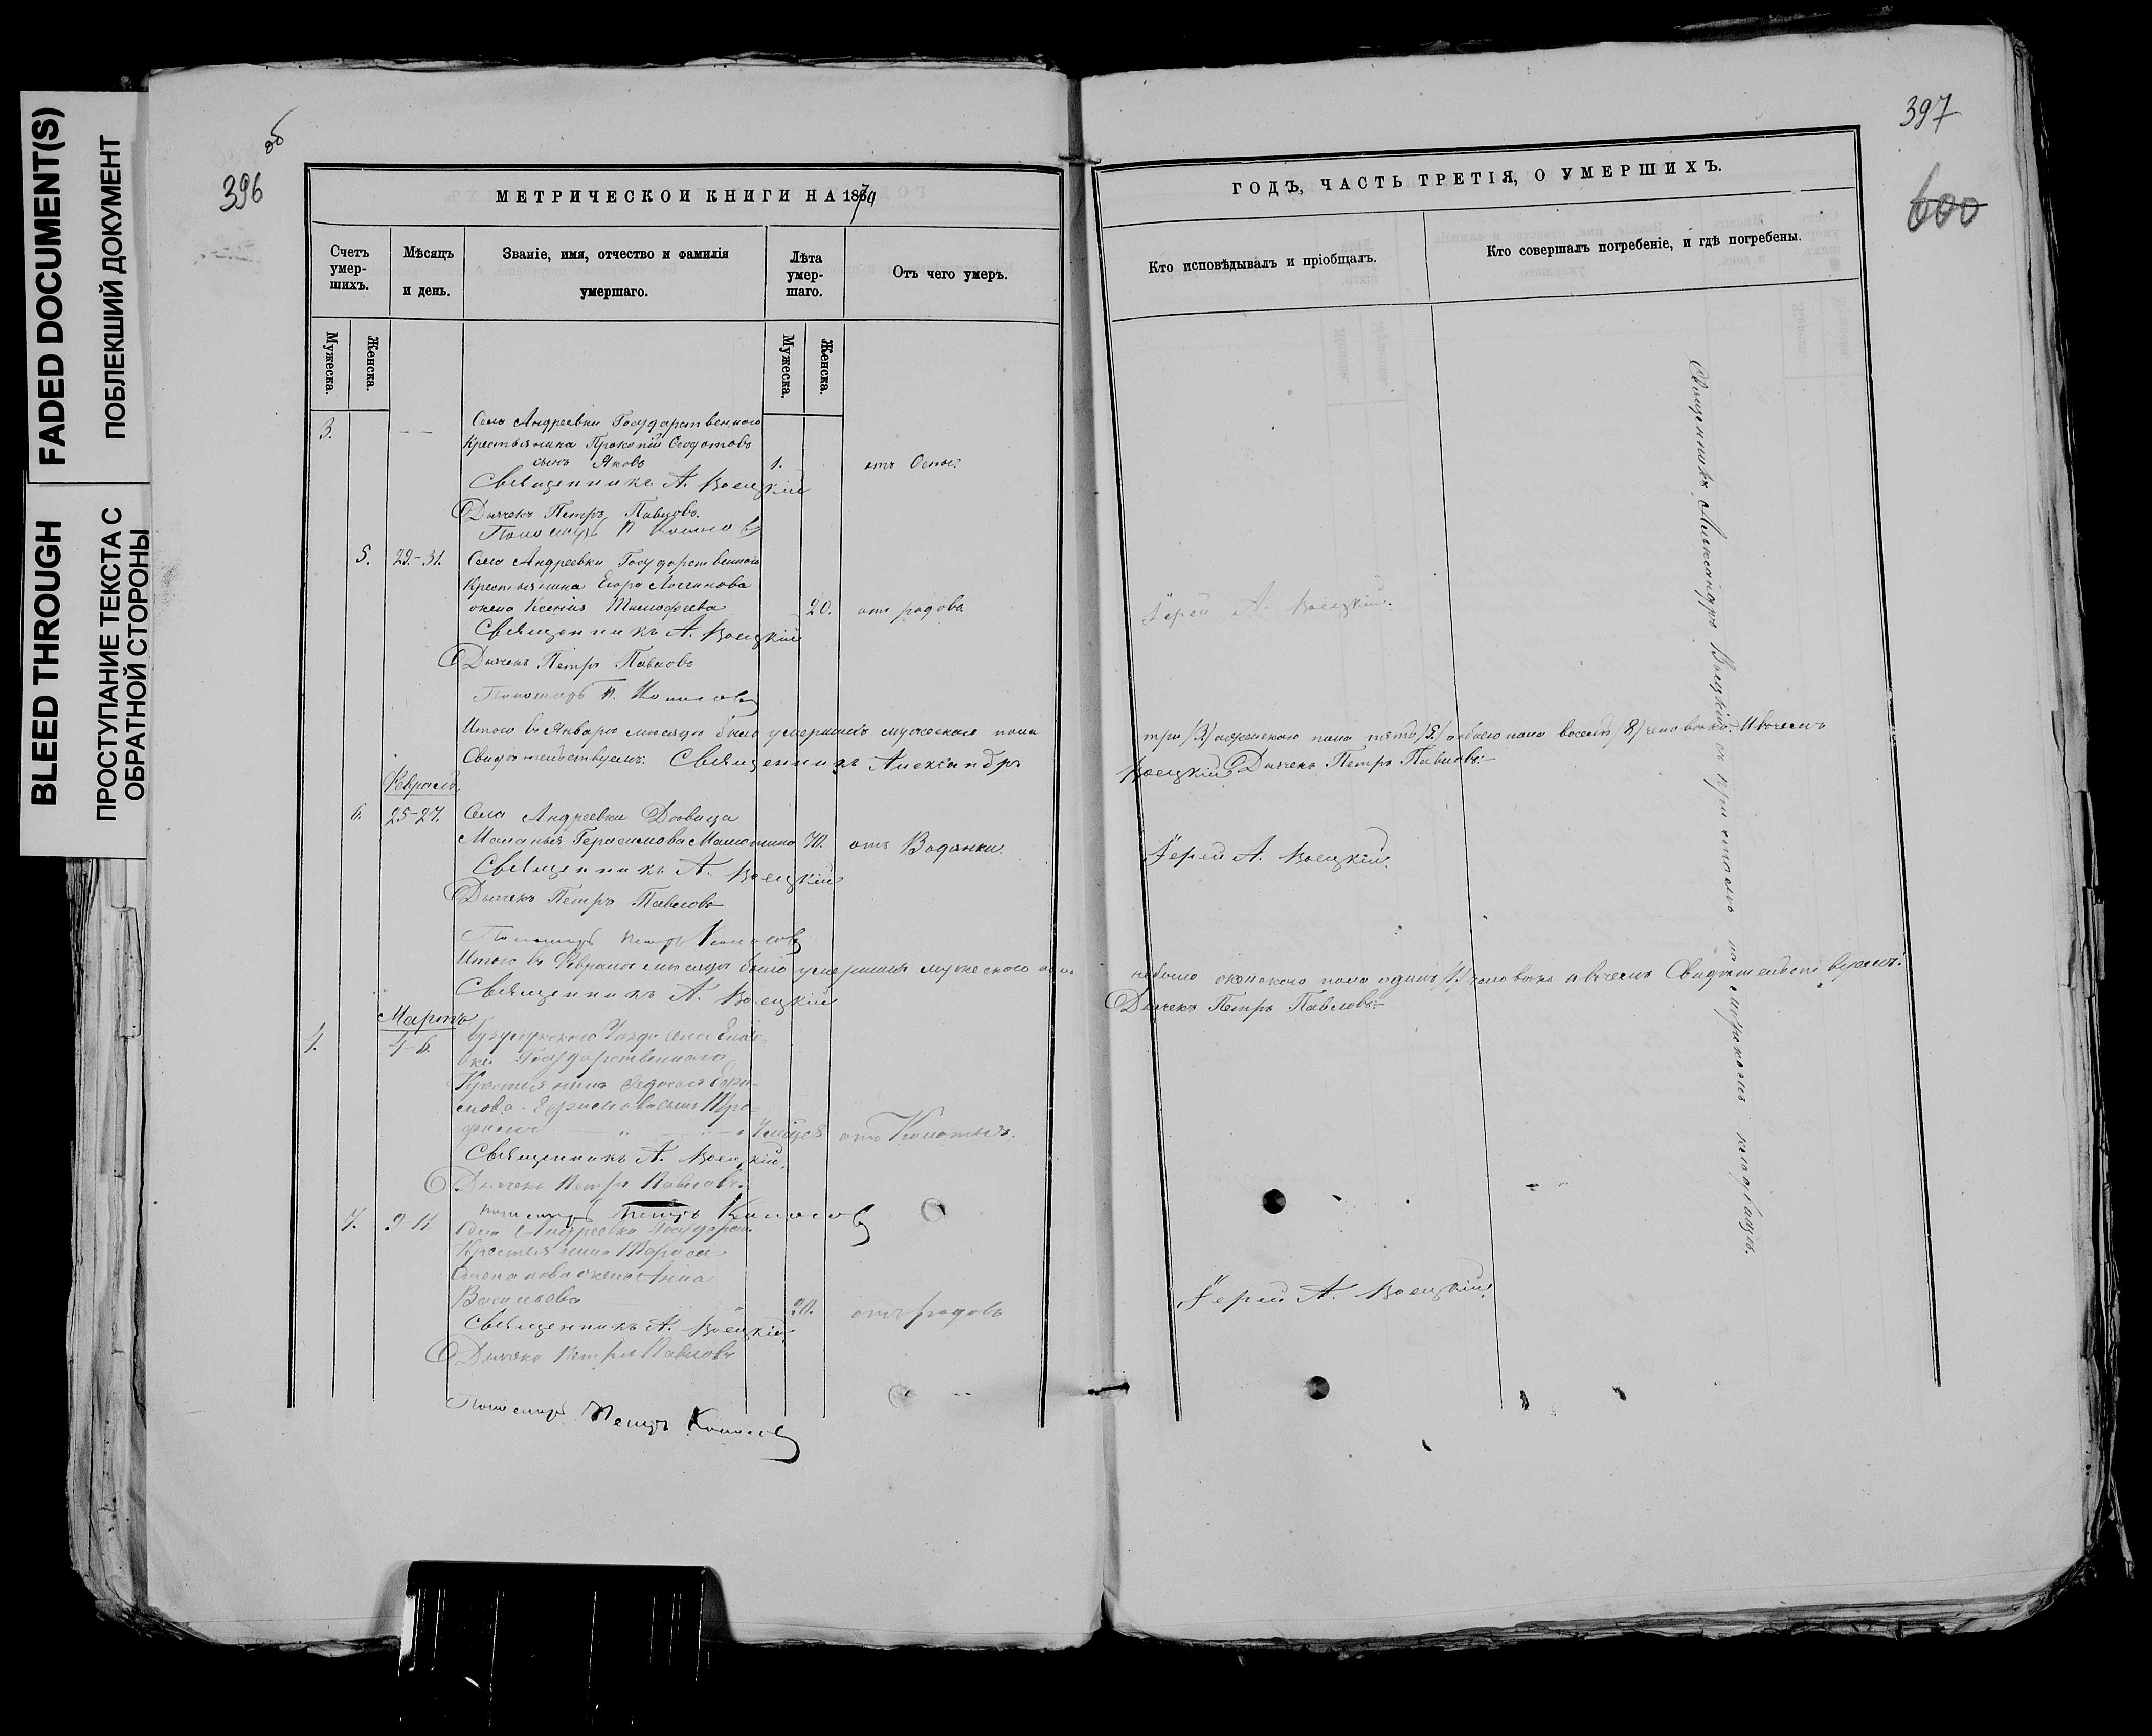 FADED DOCUMENT(S)
ПОБЛЕКШИЙ ДОКУМЕНТ
BLEED THROUGH
ПРОСТУПАНИЕ ТЕКСТА С
ОБРАТНОЙ СТОРОНЫ
об
396
МЕТРИЧЕСКОЙ КНИГИ НА 1870
Счетъ умер-шихъ.
Мѣсяцъ и день.
Званіе, имя, отчество и фамилія умершаго.
Лѣта умер-шаго.
Отъ чего умеръ.
Мужеска.
Женска.
Мужеска.
Женска.
3. — —
Села Андреевки Государственнаго
Крестьянина Прокопій Федотовъ
сынъ Яковъ 1. отъ Оспы.
Священникъ А. Воецкій
Дьячекъ Петръ Павловъ.
Пономарь П
5. 29.-31. Села Андреевки Государственнаго
Крестьянина Егора Логинова
жена Ксенія Тимофеева 20. отъ родовъ
Священникъ А. Воецкій
Дьячекъ Петръ Павловъ
Пономарь П.
Итого въ Январѣ мѣсяцѣ было умершихъ мужескаго пола
Свидѣтельствуемъ: Священникъ Александръ
Февраль.
6. 25-27. Села Андреевки Дѣвица
Маланья Герасимова 70. отъ Водянки.
Священникъ А. Воецкій
Дьячекъ Петръ Павловъ
Пономарь Петръ
Итого въ Февралѣ мѣсяцѣ было умершихъ мужескаго пола
Священникъ А. Воецкій
Мартъ
4. 4-6. Бузулукского Уѣзда села
Государственнаго
Крестьянина
отъ
Священникъ А. Воецкій.
Дьячекъ Петръ Павловъ.
Пономарь Петръ
7. 9-11. Села Андреевки Государст.
Крестьянина Тараса
Степанова жена Анна
Васильева 20. отъ родовъ
Священникъ А. Воецкій.
Дьячекъ Петръ Павловъ
Пономарь Петръ
397
600
ГОДЪ, ЧАСТЬ ТРЕТІЯ, О УМЕРШИХЪ.
Кто исповѣдывалъ и пріобщалъ.
Кто совершалъ погребеніе, и гдѣ погребены.
Іерей А. Воецкій.
три /3/ женскаго пола пять /5/ обоего пола восемь /8/ человѣкъ. И въ чемъ
Воецкій Дьячекъ Петръ Павловъ.
Іерей А. Воецкій.
небыло женскаго пола одинъ /1/ человѣкъ и въ чемъ Свидѣтельствуемъ:
Дьячекъ Петръ Павловъ.
Іерей А. Воецкій.
Священникъ Александръ Воецкій съ причтомъ на кладбищѣ.